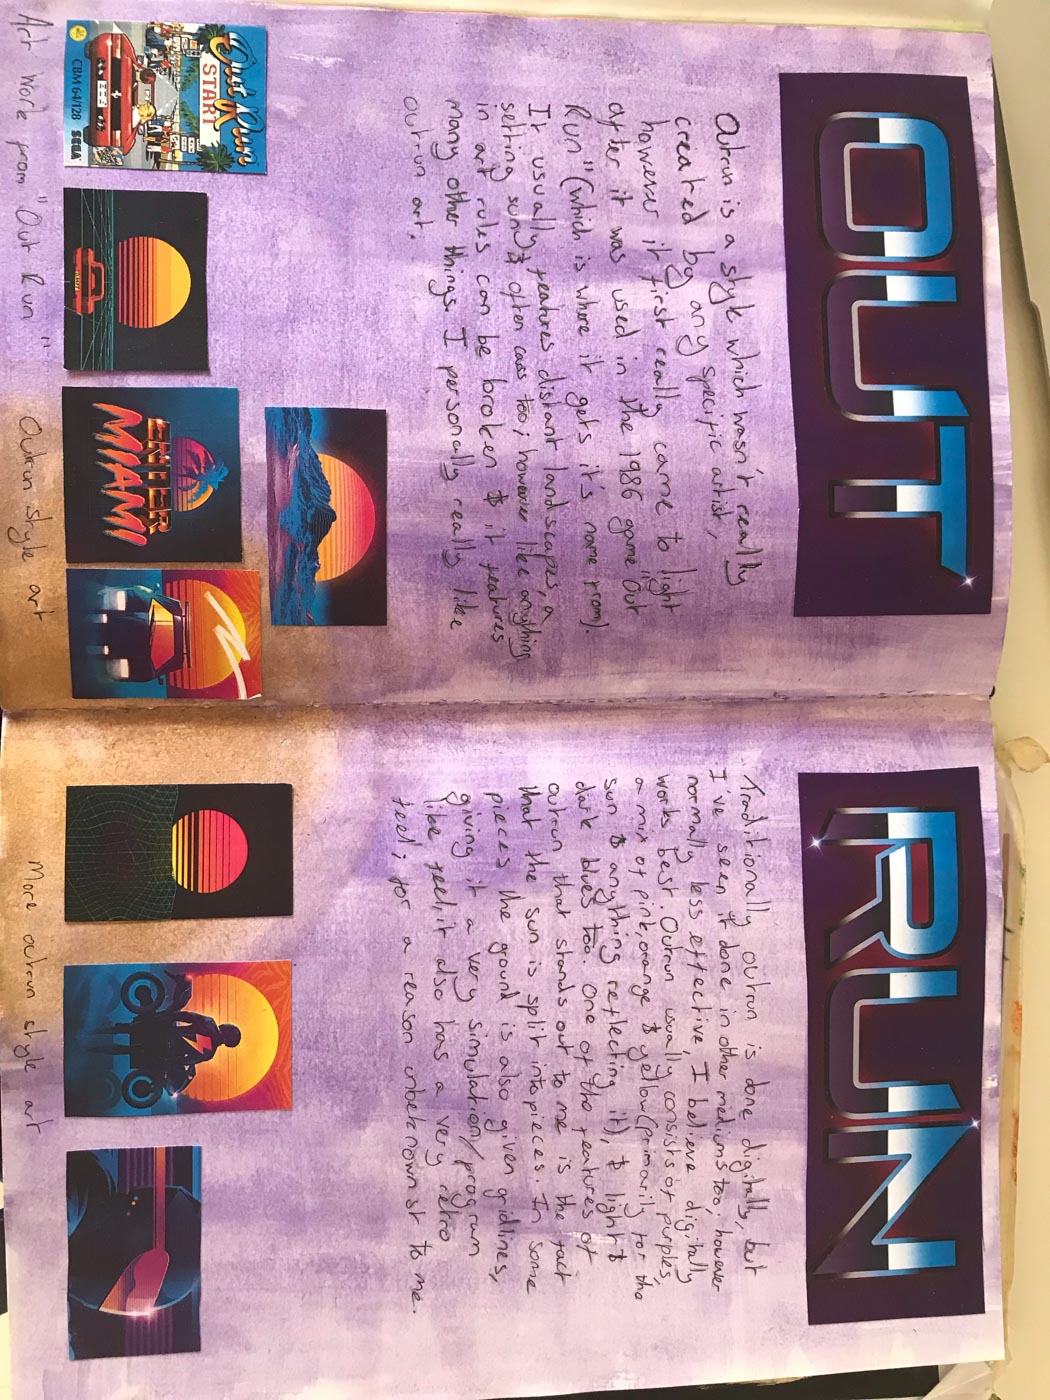 OUT
Outrun is a style which wasn't really
created by any specific artist,
however it first really came to light
after it was used in the 1986 game "Out
Run" (which is where it gets it's name from).
It usually features distant landscapes, a
setting sun & often cars too; however like anything
in art rules can be broken & it features
many other things I personally really like
outrun art.
Out Run
START
CBM 64/128
SEGA
ENTER
MIAMI
Art work from "Out Run"
Outrun style art
RUN
Traditionally outrun is done digitally, but
I've seen it done in other mediums too; however
normally less effective, I believe digitally
works best. Outrun usually consists of purples,
a mix of pink, orange & yellow (primarily for the
sun & anything reflecting it), & light &
dark blues too. One of the features of
outrun that stands out to me is the fact
that the sun is split into pieces. In some
pieces the ground is also given gridlines,
giving it a very simulation/program
like feel; it also has a very retro
feel; for a reason unbeknownst to me.
More outrun style art